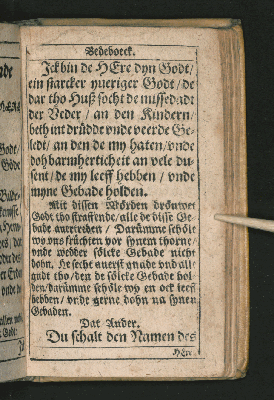 Bedeboeck.
Jck bin de HEre dyn Godt/
ein starcker yueriger Godt/ de
dar tho Huß socht de missedadt
der Veder/ an den Kindern/
beth int drüdde vnde veerde Ge-
ledt/ an den de my haten/ vnde
doh barmherticheit an vele du-
sent/ de my leeff hebben/ vnde
myne Gebade holden.
Mit dissen Wörden dröuwet
Godt tho straffende/ alle de disse Ge-
bade auertreden/ Darümme schöle
wy vns früchten vor synem thorne/
vnde wedder sölcke Gebade nicht
dohn. He secht auerst gnade vnd all-
gudt tho/ den de sölcke Gebade hol-
den/ darümme schöle wy en ock leeff
hebben/ vnde gerne dohn na synen
Gebaden.
Dat Ander.
Du schalt den Namen des
HEre